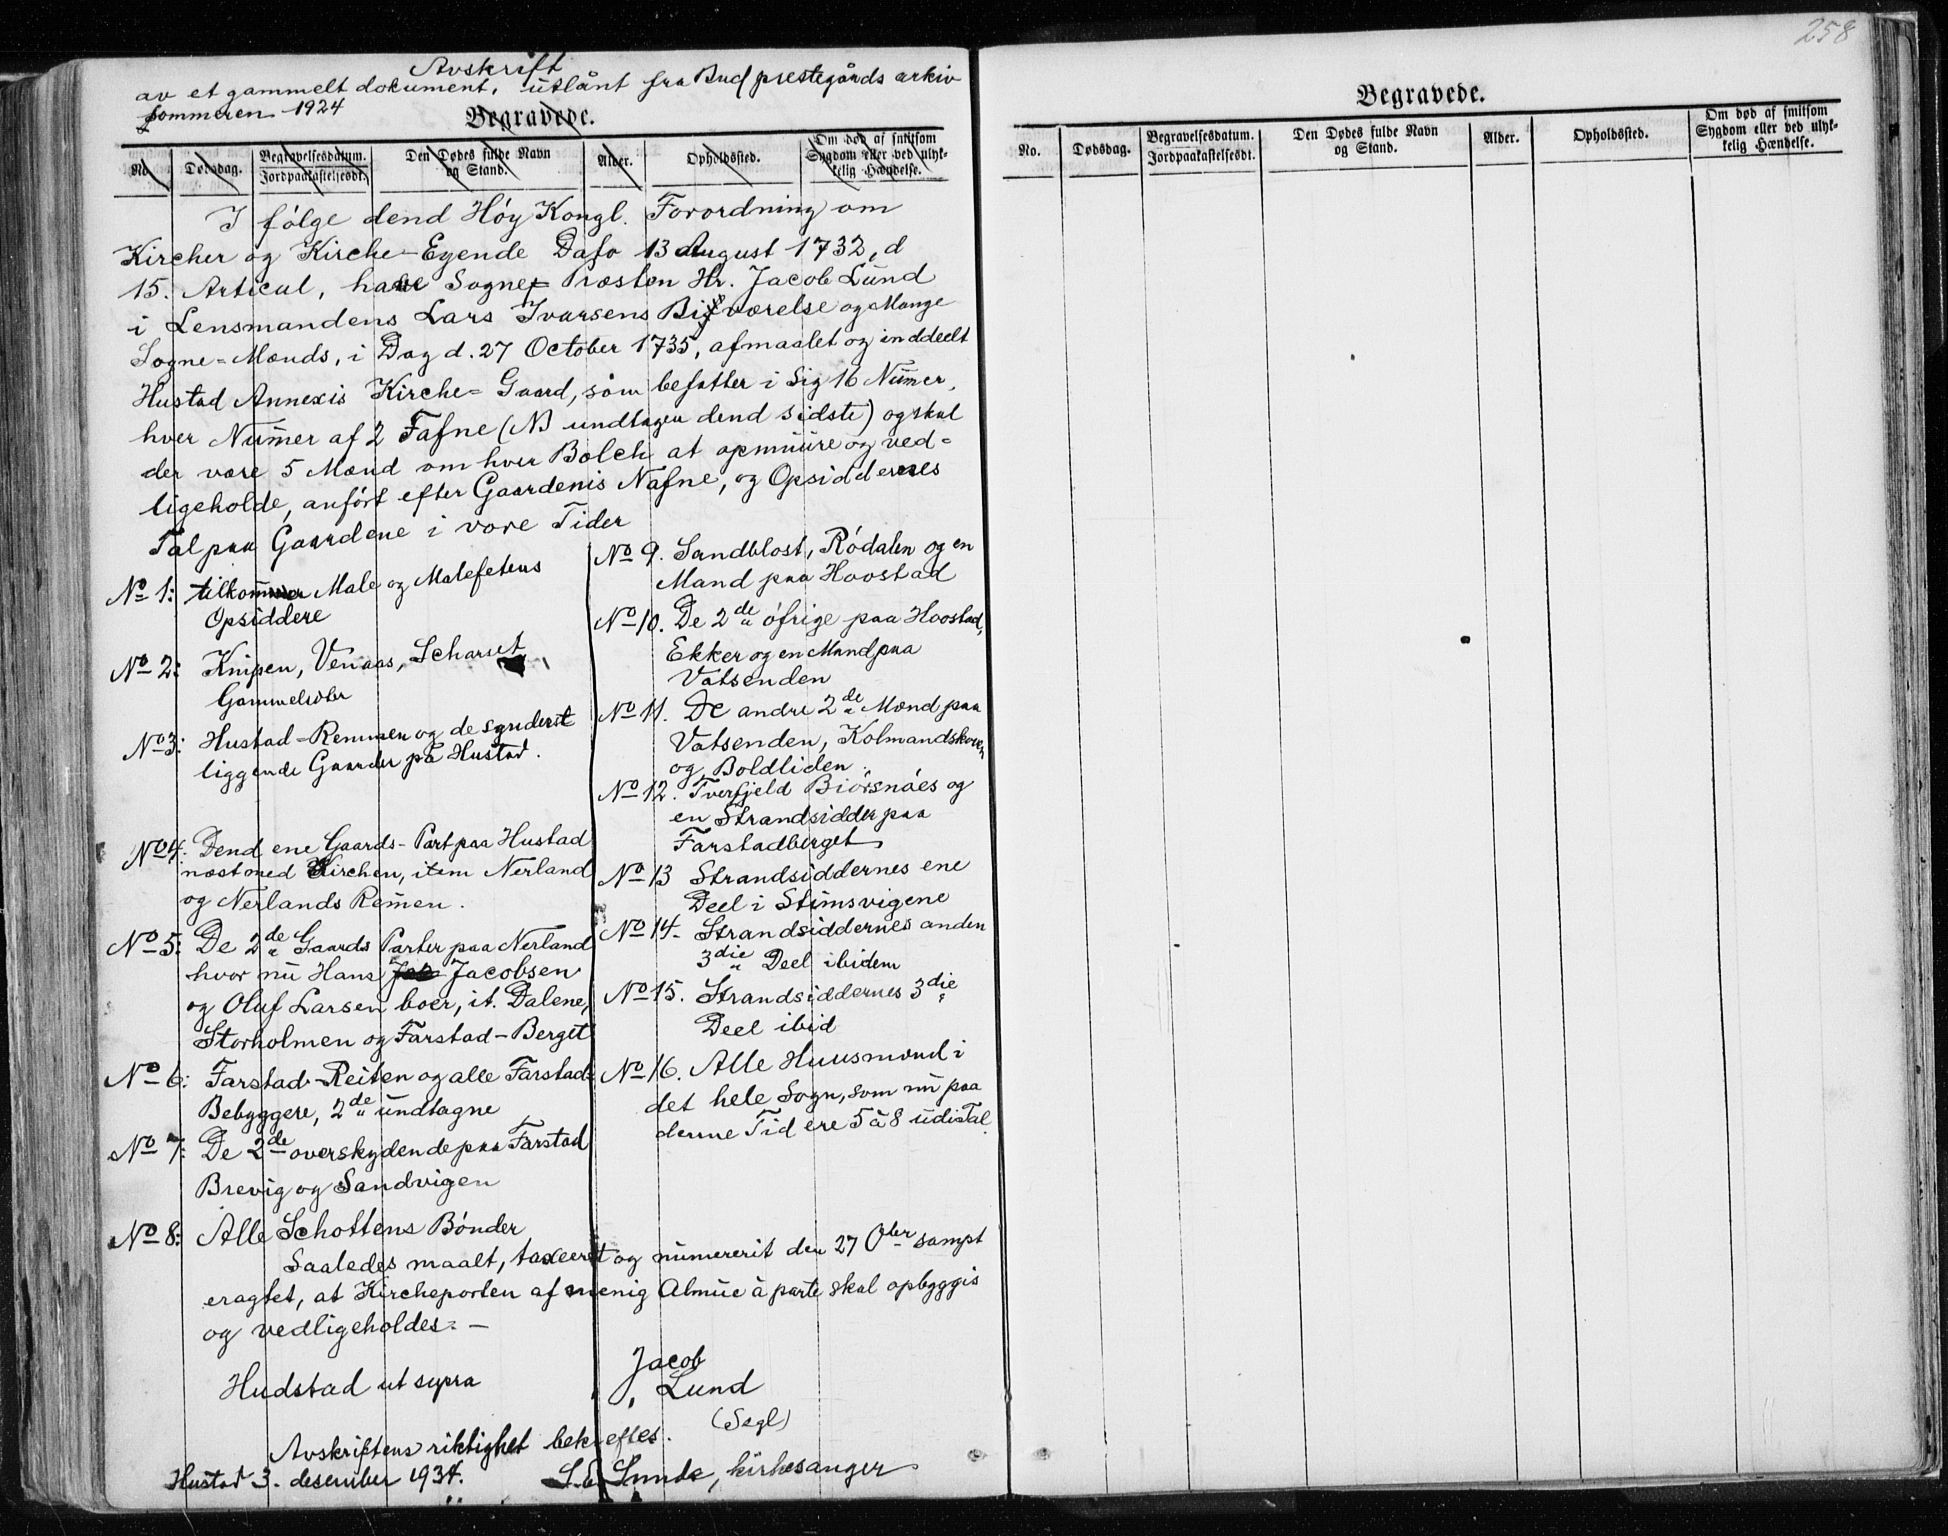 Avskrift
av et gammelt dokument, utlånt fra Bud prestegårds arkiv
sommeren 1924
Begravede.
No. Dødsdag. Begravelsesdatum. Jordpaakastelsesdt. Den Dødes fulde Navn og Stand. Alder. Opholdssted. Om død af smitsom Sygdom eller ved ulyk- kelig Hændelse.
I følge dend Høy Kongl. Forordning om
Kircher og Kirche-Eyende Dato 13 August 1732, d
15. Articul, have Sogne Præsten Hr. Jacob Lund
i Lensmandens Lars Ivarsens Bisværelse og Mange
Sogne=Mænds, i Dag d. 27 October 1735, afmaalet og inddeelt
Hustad Annexis Kirche=Gaard, som befatter i Sig 16 Numer,
hver Numer af 2 Fafne (NB undtagen dend sidste) og skal
der være 5 Mænd om hver Bolch at opmuure og ved=
ligeholde, anført efter Gaardenis Nafne, og Opsiddernes
Tal paa Gaardene i vore Tider
No 1: tilkommer Male og Malefetens
Opsiddere
No 2: Knipen, Venaas, Scharset
Gammelsæter
No 3: Hustad-Remmen og de synderst
liggende Gaarder på Hustad.
No 4: Dend ene Gaards-Part paa Hustad
næst ned Kirchen, item Nerland
og Nerlands Remen.
No 5: De 2de Gaards Parter paa Nerland
hvor nu Hans Jacobsen
og Oluf Larsen boer, it. Dalene,
Storholmen og Farstad-Berget
No 6: Farstad-Reiten og alle Farstad=
Bebyggere, 2de undtagne
No 7: De 2de overskydende paa Farstad
Brevig og Sandvigen
No 8: Alle Schottens Bønder
No 9. Sandblost, Rødalen og en
Mand paa Hoostad
No 10. De 2de øfrige paa Hoostad,
Ekker og en Mand paa
Vatsenden
No 11. De andre 2de Mænd paa
Vatsenden, Kolmandskoven
og Boldliden
No 12. Tverfjeld Biørsnæs og
en Strandsidder paa
Farstadberget
No 13 Strandsiddernes ene
Deel i Stimsvigene
No 14. Strandsiddernes anden
3die Deel ibidem
No 15. Strandsiddernes 3die
Deel ibid
No 16. Alle Huusmænd i
det hele Sogn, som nu paa
denne Tid ere 5 à 8 udi Tal.
Saaledes maalt, taxeerit og numererit den 27 Ober sampt
eragtet, at Kircheporten af menig Almue à parte skal opbyggis
og vedligeholdes.-
Hudstad ut supra
Jacob
Lund
(Segl)
Avskriftens riktighet bekreftes.
Hustad 3. desember 1934. Lunde, kirkesanger
258
Begravede.
No. Dødsdag. Begravelsesdatum. Jordpaakastelsesdt. Den Dødes fulde Navn og Stand. Alder. Opholdssted. Om død af smitsom Sygdom eller ved ulyk- kelig Hændelse.